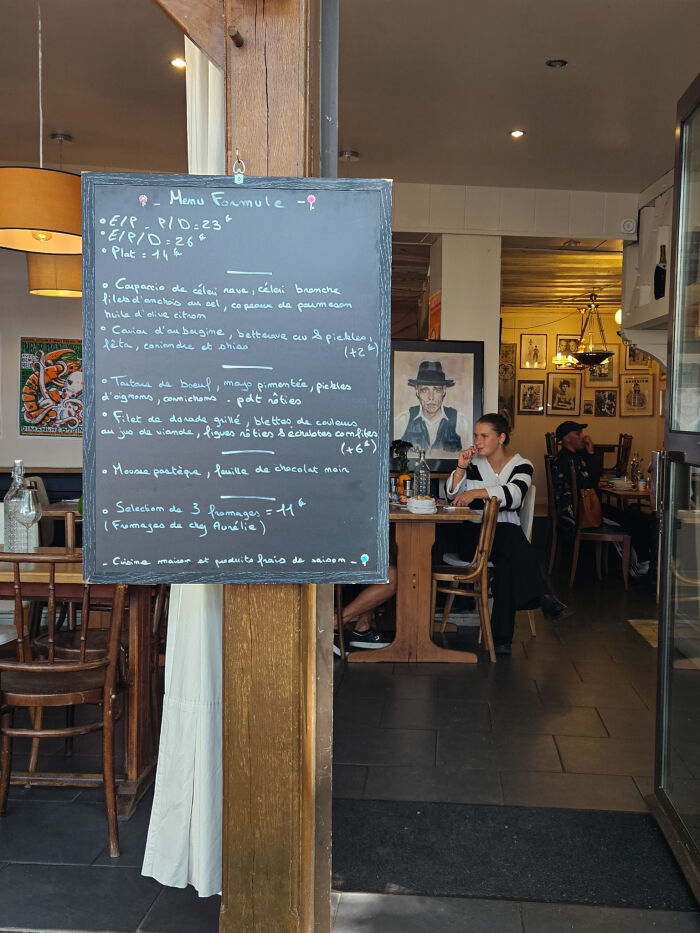 - Menu Formule -
• E/P - P/D = 23€
• E/P/D = 26€
• Plat = 14€
• Capaccio de céleri rave, céleri branche
filets d'anchois au sel, copeaux de parmesan
huile d'olive citron
• Caviar d'aubergine, betterave cru & pickles,
féta, coriandre et chips
(+2€)
• Tartare de boeuf, mayo pimentée, pickles
d'oignons, cornichons - pdt rôties
• Filet de dorade grillé, blettes de couleurs
au jus de viande, figues rôties & échalotes confites
(+6€)
• Mousse pastèque, feuille de chocolat noir
• Selection de 3 fromages = 11€
(Fromages de chez Aurélie)
- Cuisine maison et produits frais de saison -
DIMANCHE